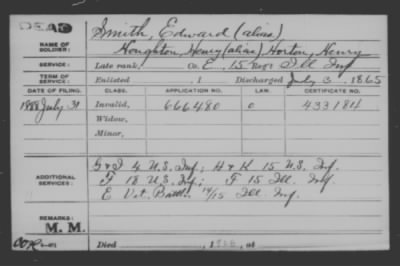 DEAD
Smith, Edward (alias)
NAME OF SOLDIER: Houghton, Henry (alias) Horton, Henry
SERVICE: Late rank, Co. E, 15 Reg't Ill Inf
TERM OF SERVICE: Enlisted , 1 Discharged July 3, 1865
DATE OF FILING. CLASS. APPLICATION NO. LAW. CERTIFICATE NO.
1888 July 31 Invalid, 666480 0 433184
Widow,
Minor,
G & I 4 U.S. Inf; H & K 15 U.S. Inf.
ADDITIONAL SERVICES: F 18 U.S. Inf; F 15 Ill. Inf.
E Vet. Battn 14/15 Ill. Inf.
REMARKS:
M. M.
Died , 19 , at